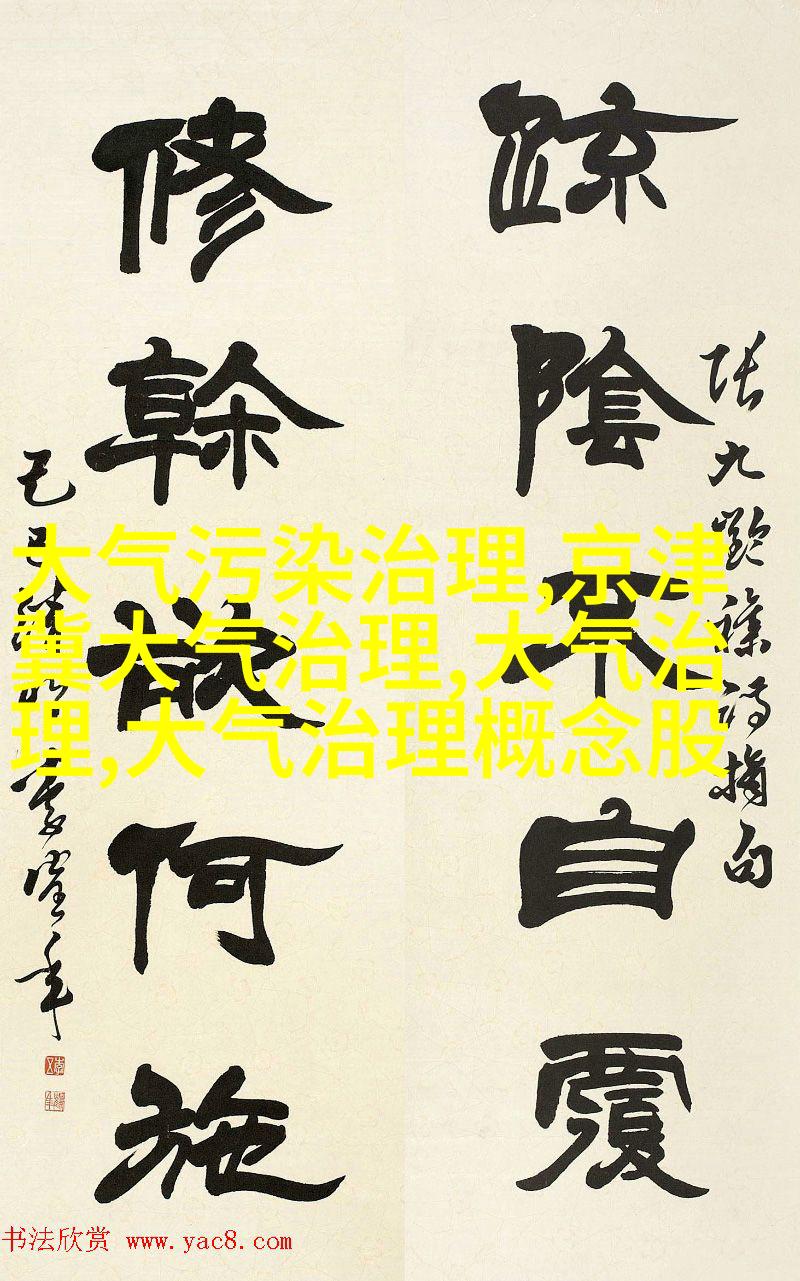 張九齡雜詩摘句
疎陰不自覆
修榦欲何施
己巳
年
大气污染治理,京津
冀大气治理,大气治
理,大气治理概念股
书法欣赏 www.yac8.com